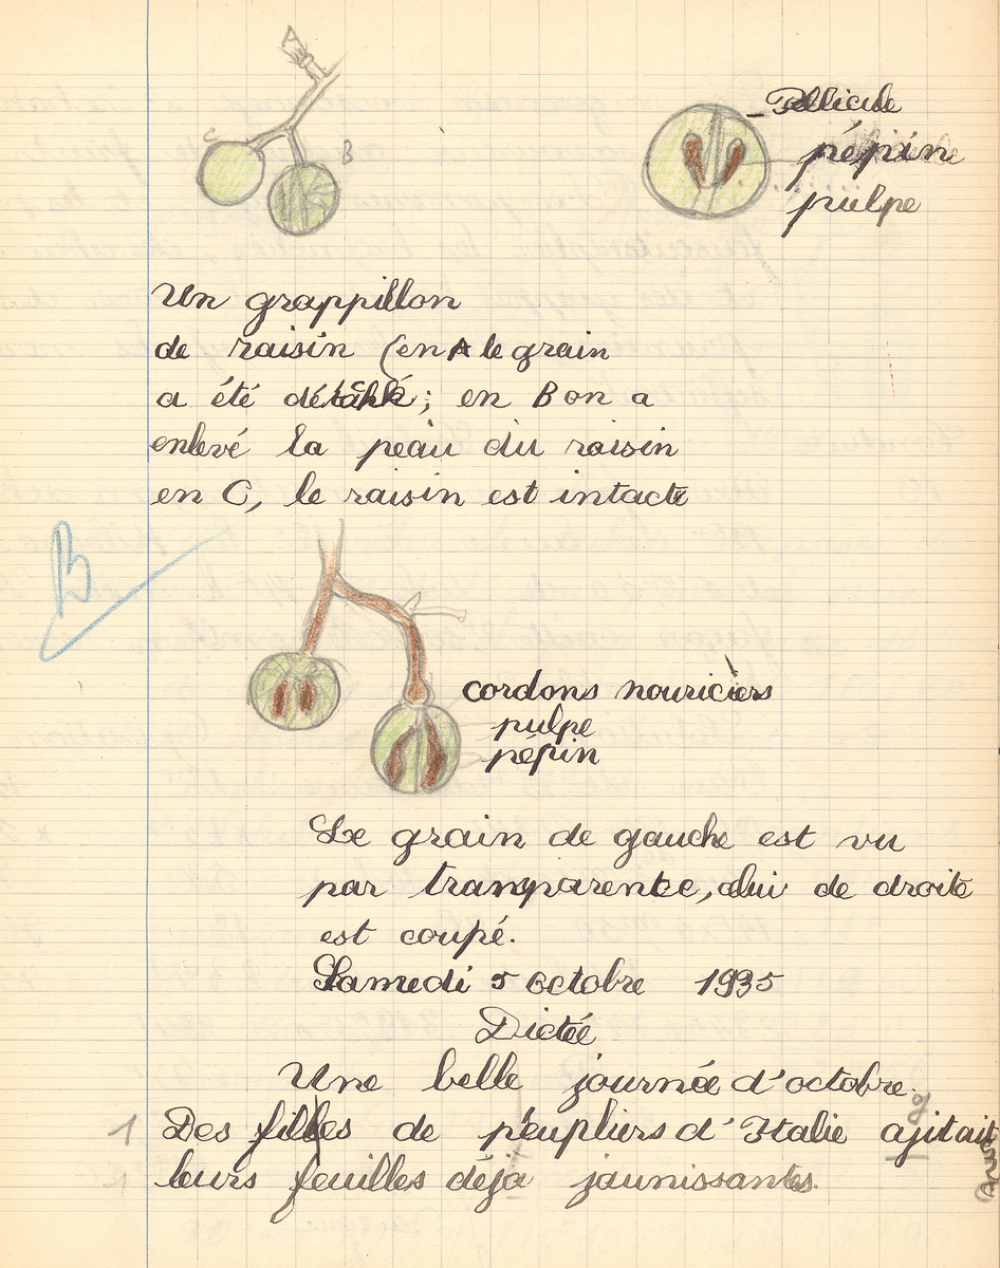 A
C
B
Pellicule
pépin
pulpe
Un grappillon
de raisin (en A le grain
a été détâhé; en B on a
enlevé la peau du raisin
en C, le raisin est intacte
B
cordons nouriciers
pulpe
pépin
Le grain de gauche est vu
par transparente, celui de droite
est coupé.
Samedi 5 octobre 1935
Dictée
Une belle journée d'octobre.
1 Des filles de peupliers d'Italie ajitait
g
leurs feuilles déja jaunissantes.